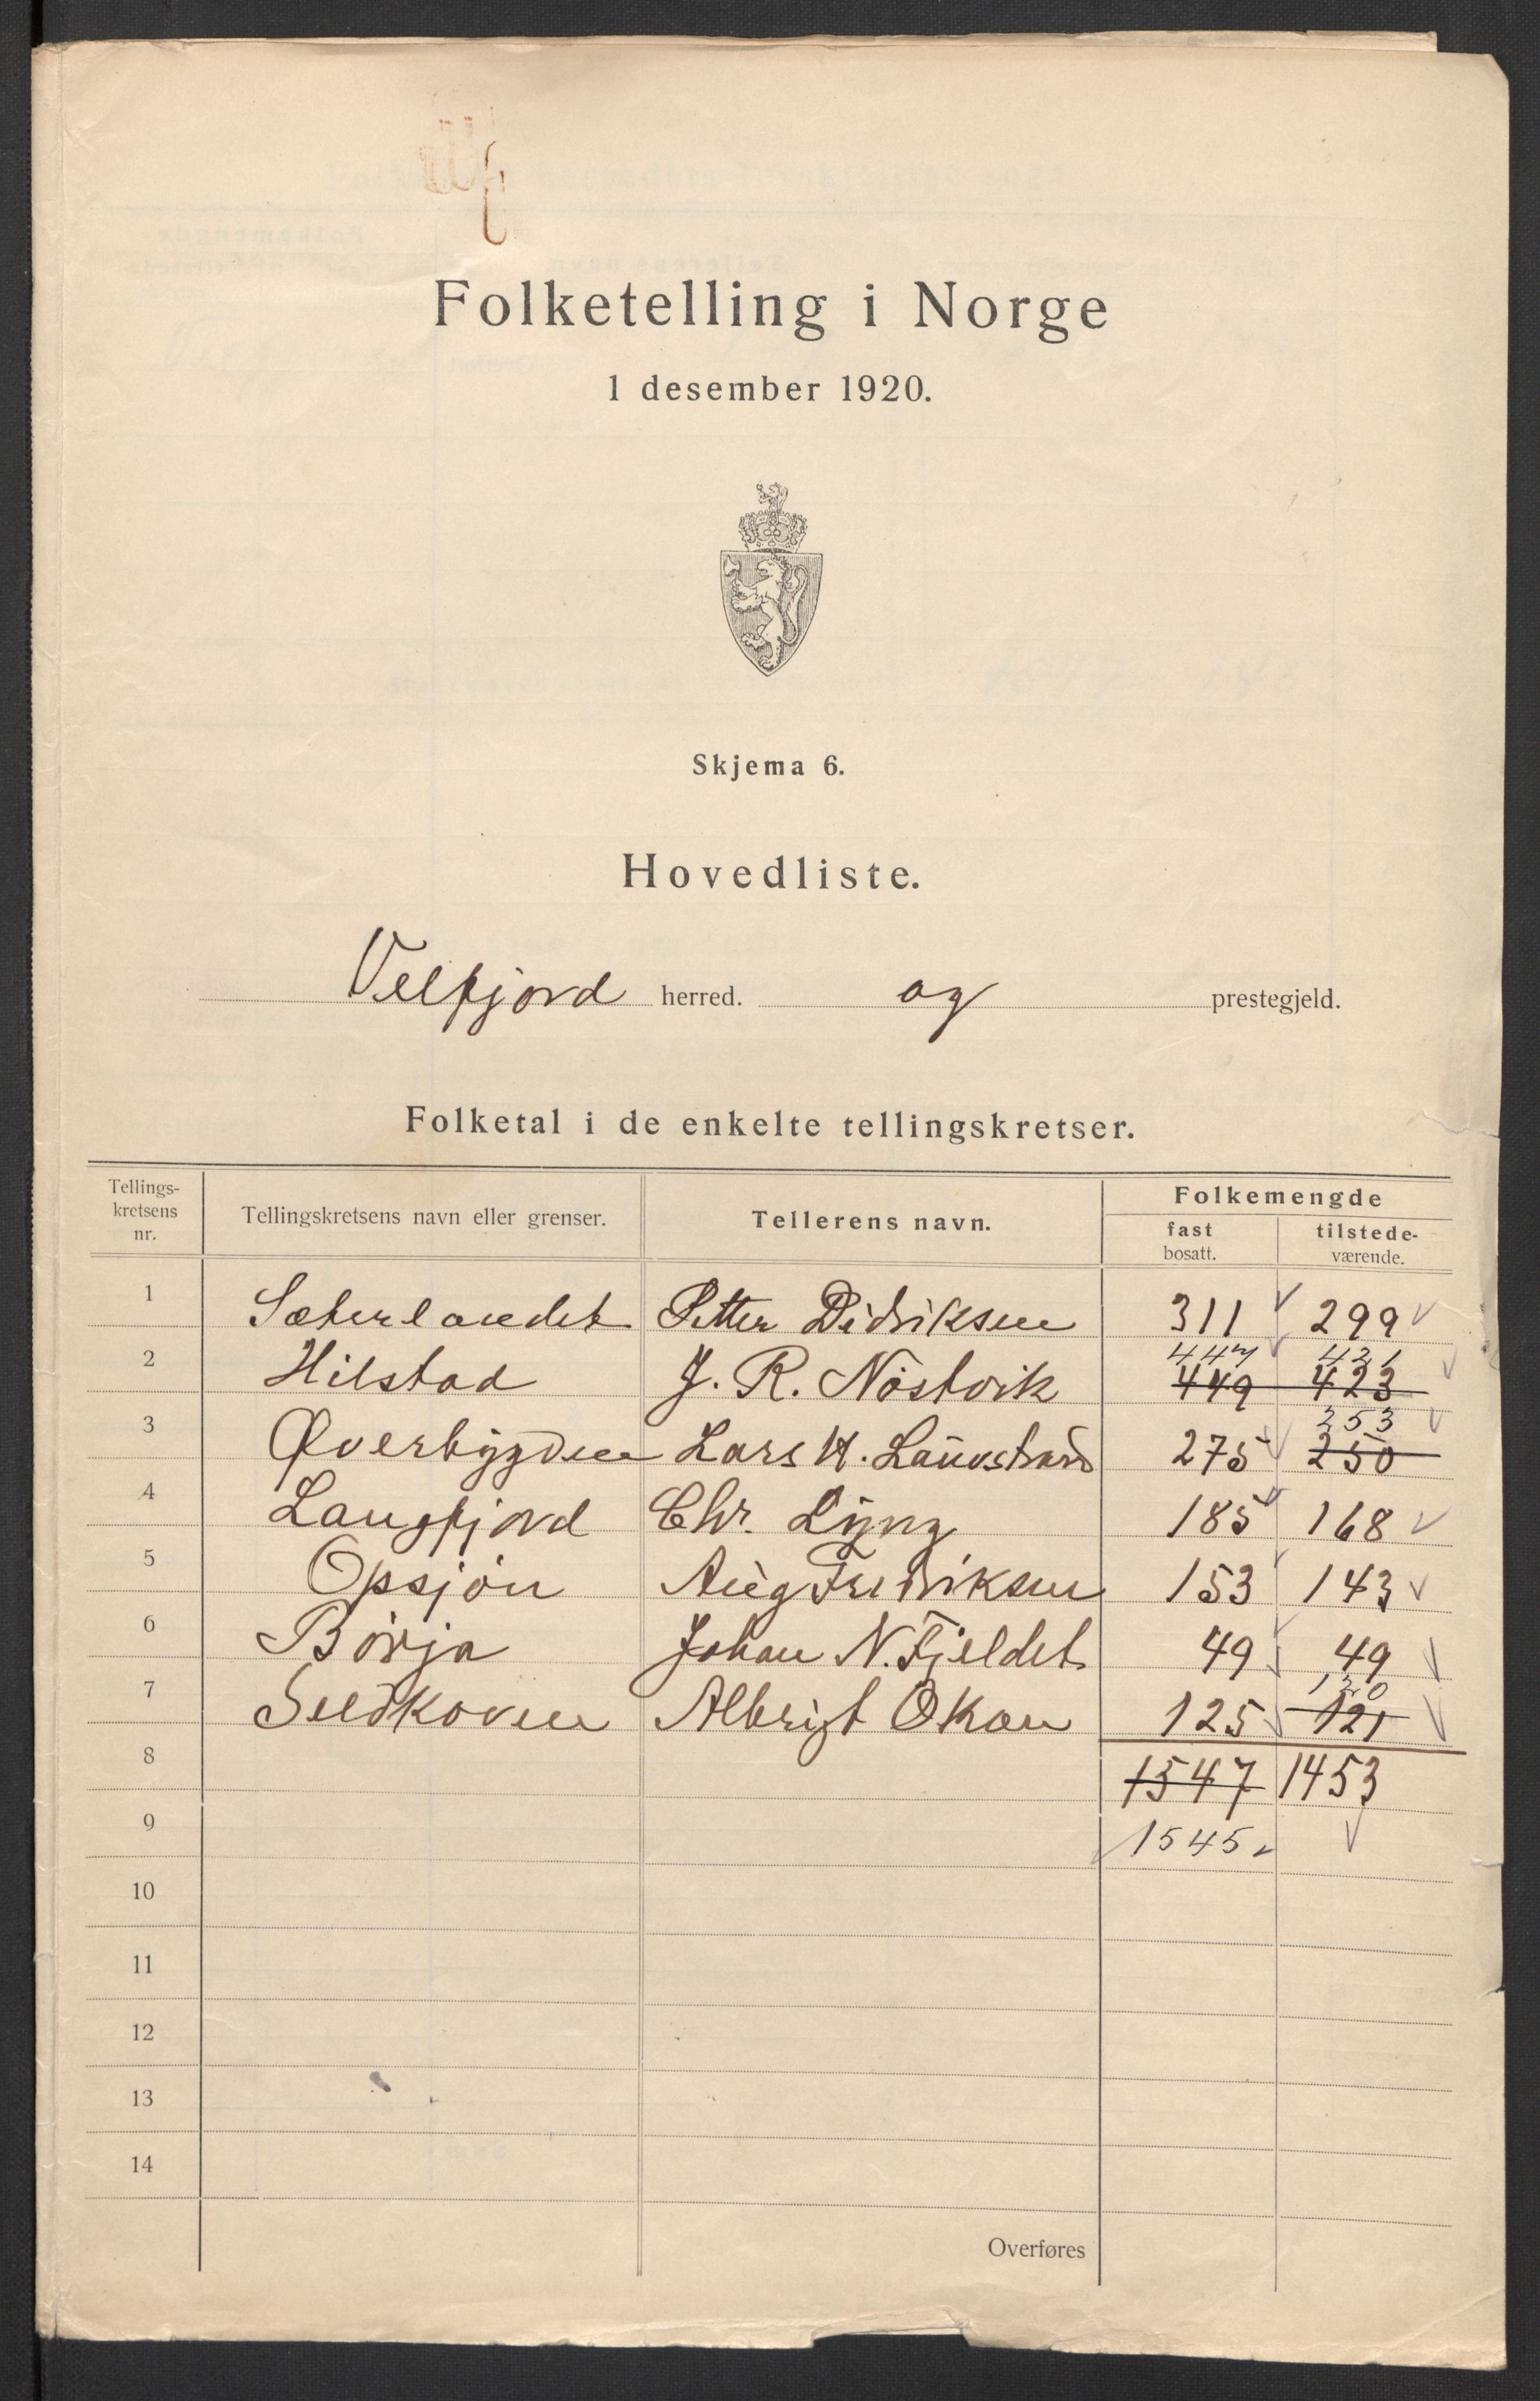 Folketelling i Norge
1 desember 1920.
Skjema 6.
Hovedliste.
Velfjord herred. og prestegjeld.
Folketal i de enkelte tellingskretser.
Tellings-
kretsens
nr.
Tellingskretsens navn eller grenser.
Tellerens navn.
Folkemengde
fast
bosatt.
tilstede-
værende.
1 Sæterlandet Petter Didriksen 311 299
447 421
2 Hilstad J. R. Nöstvik 449 423
253
3 Øverbygden Lars H. 275 250
4 Langfjord Chr. Lyng 185 168
5 Opsjön Aug Fredriksen 153 143
6 Börja Johan N. Fjeldet 49 49
120
7 Seldkoven Albrigt Okan 125 121
8 1547 1453
9 1545
10
11
12
13
14
Overføres